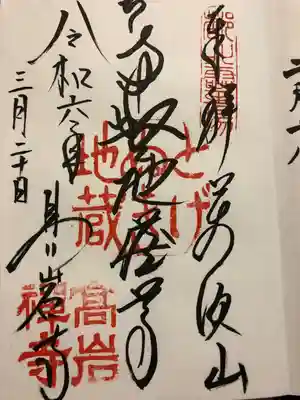 奉拝 萬頂山
地蔵尊
令和六年
三月二十日
高岩寺
とげ
地蔵
高岩
禅寺